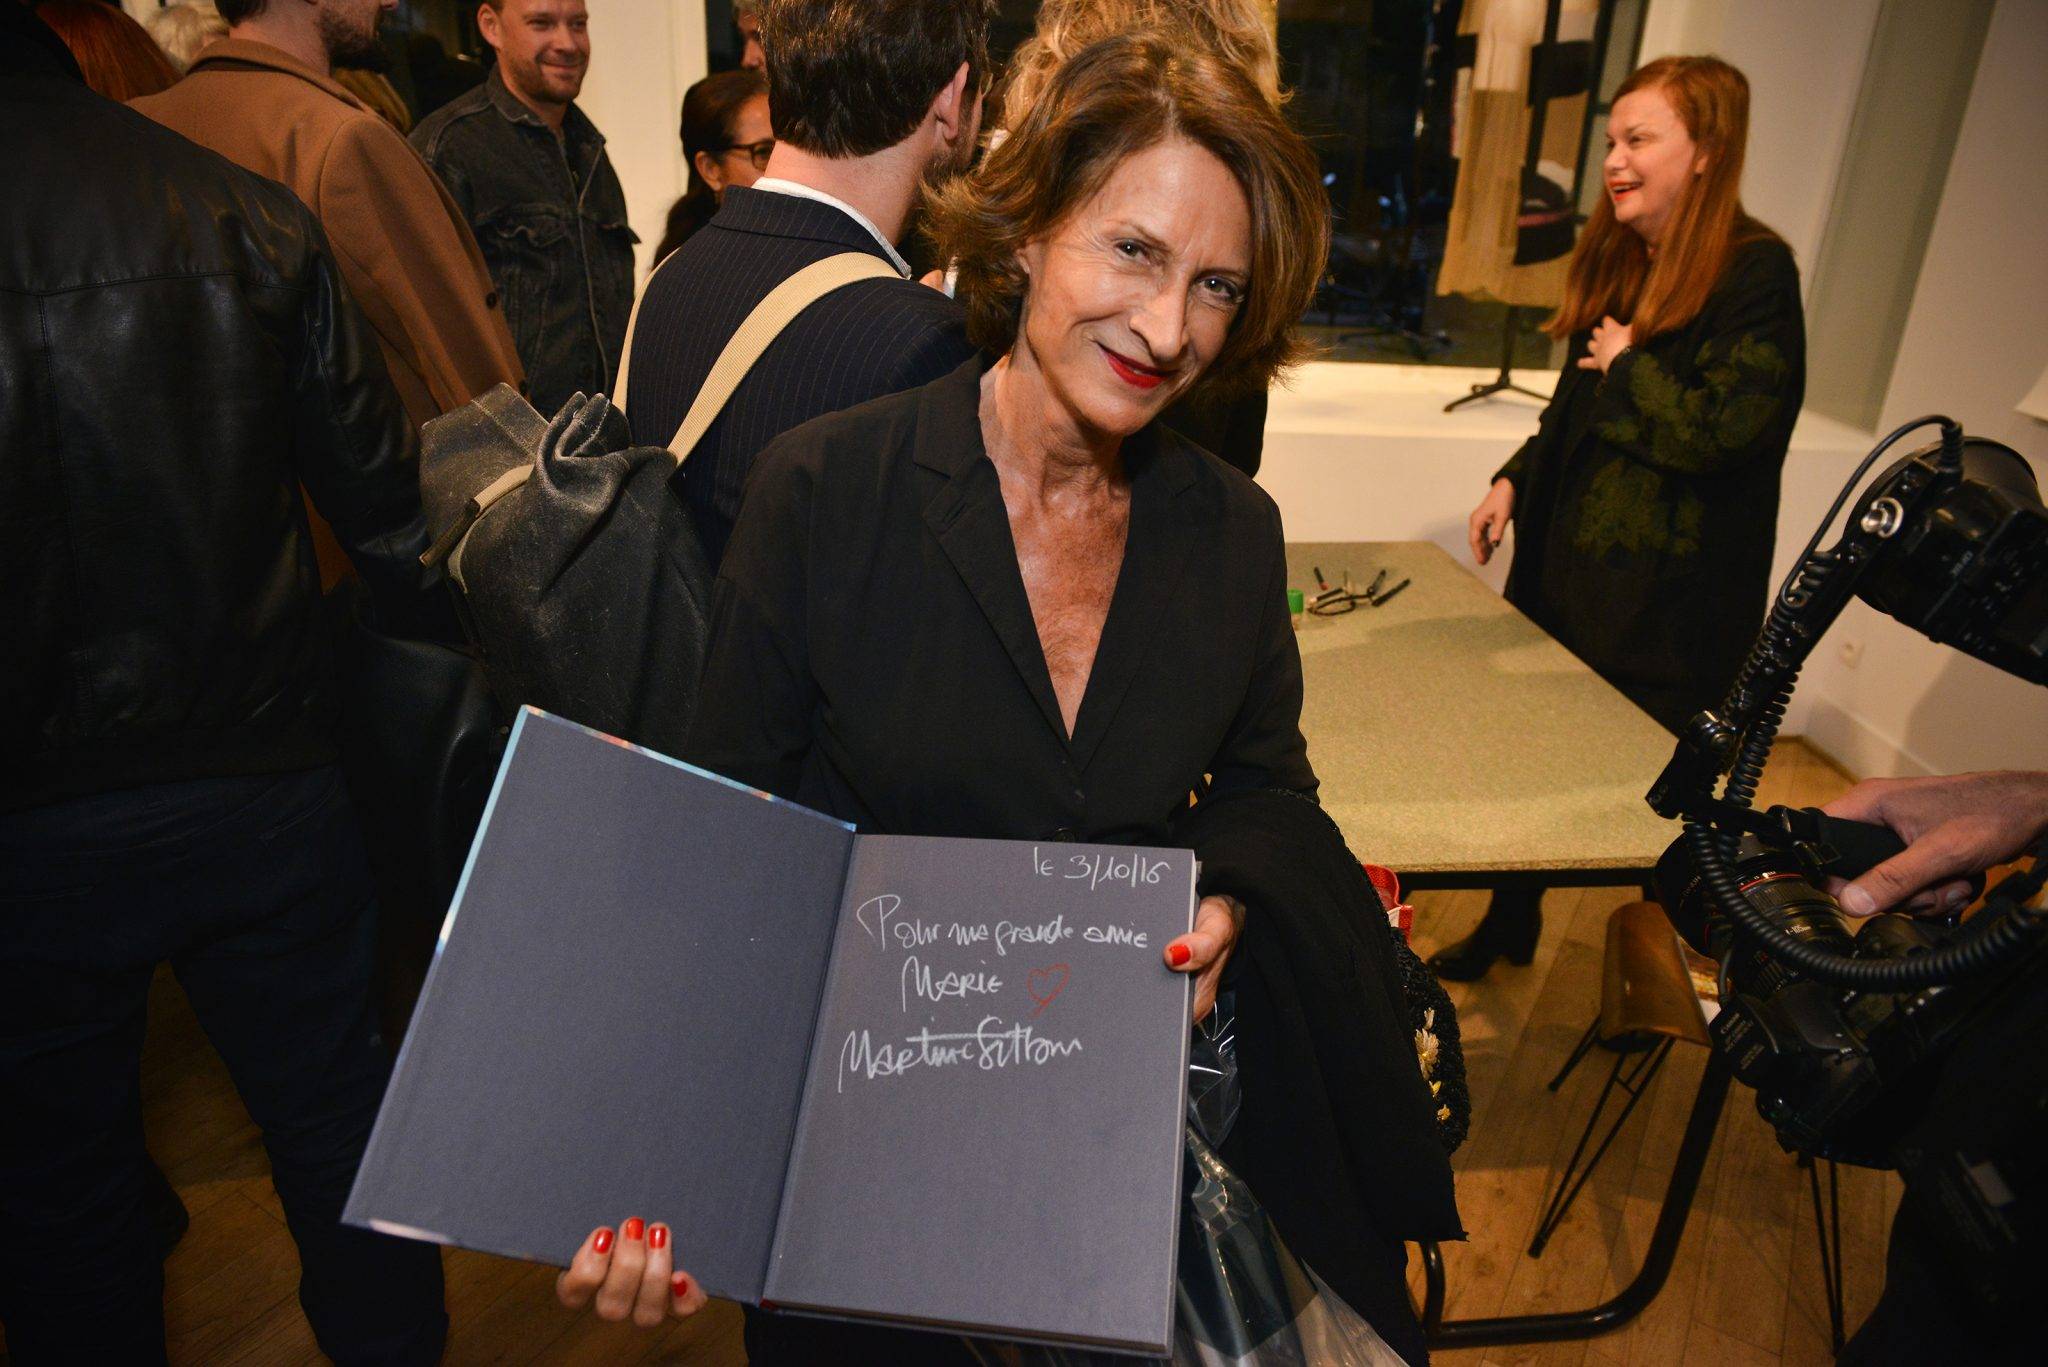 le 3/10/16
Pour ma grande amie
Marie
Martine Sitbon
Canon